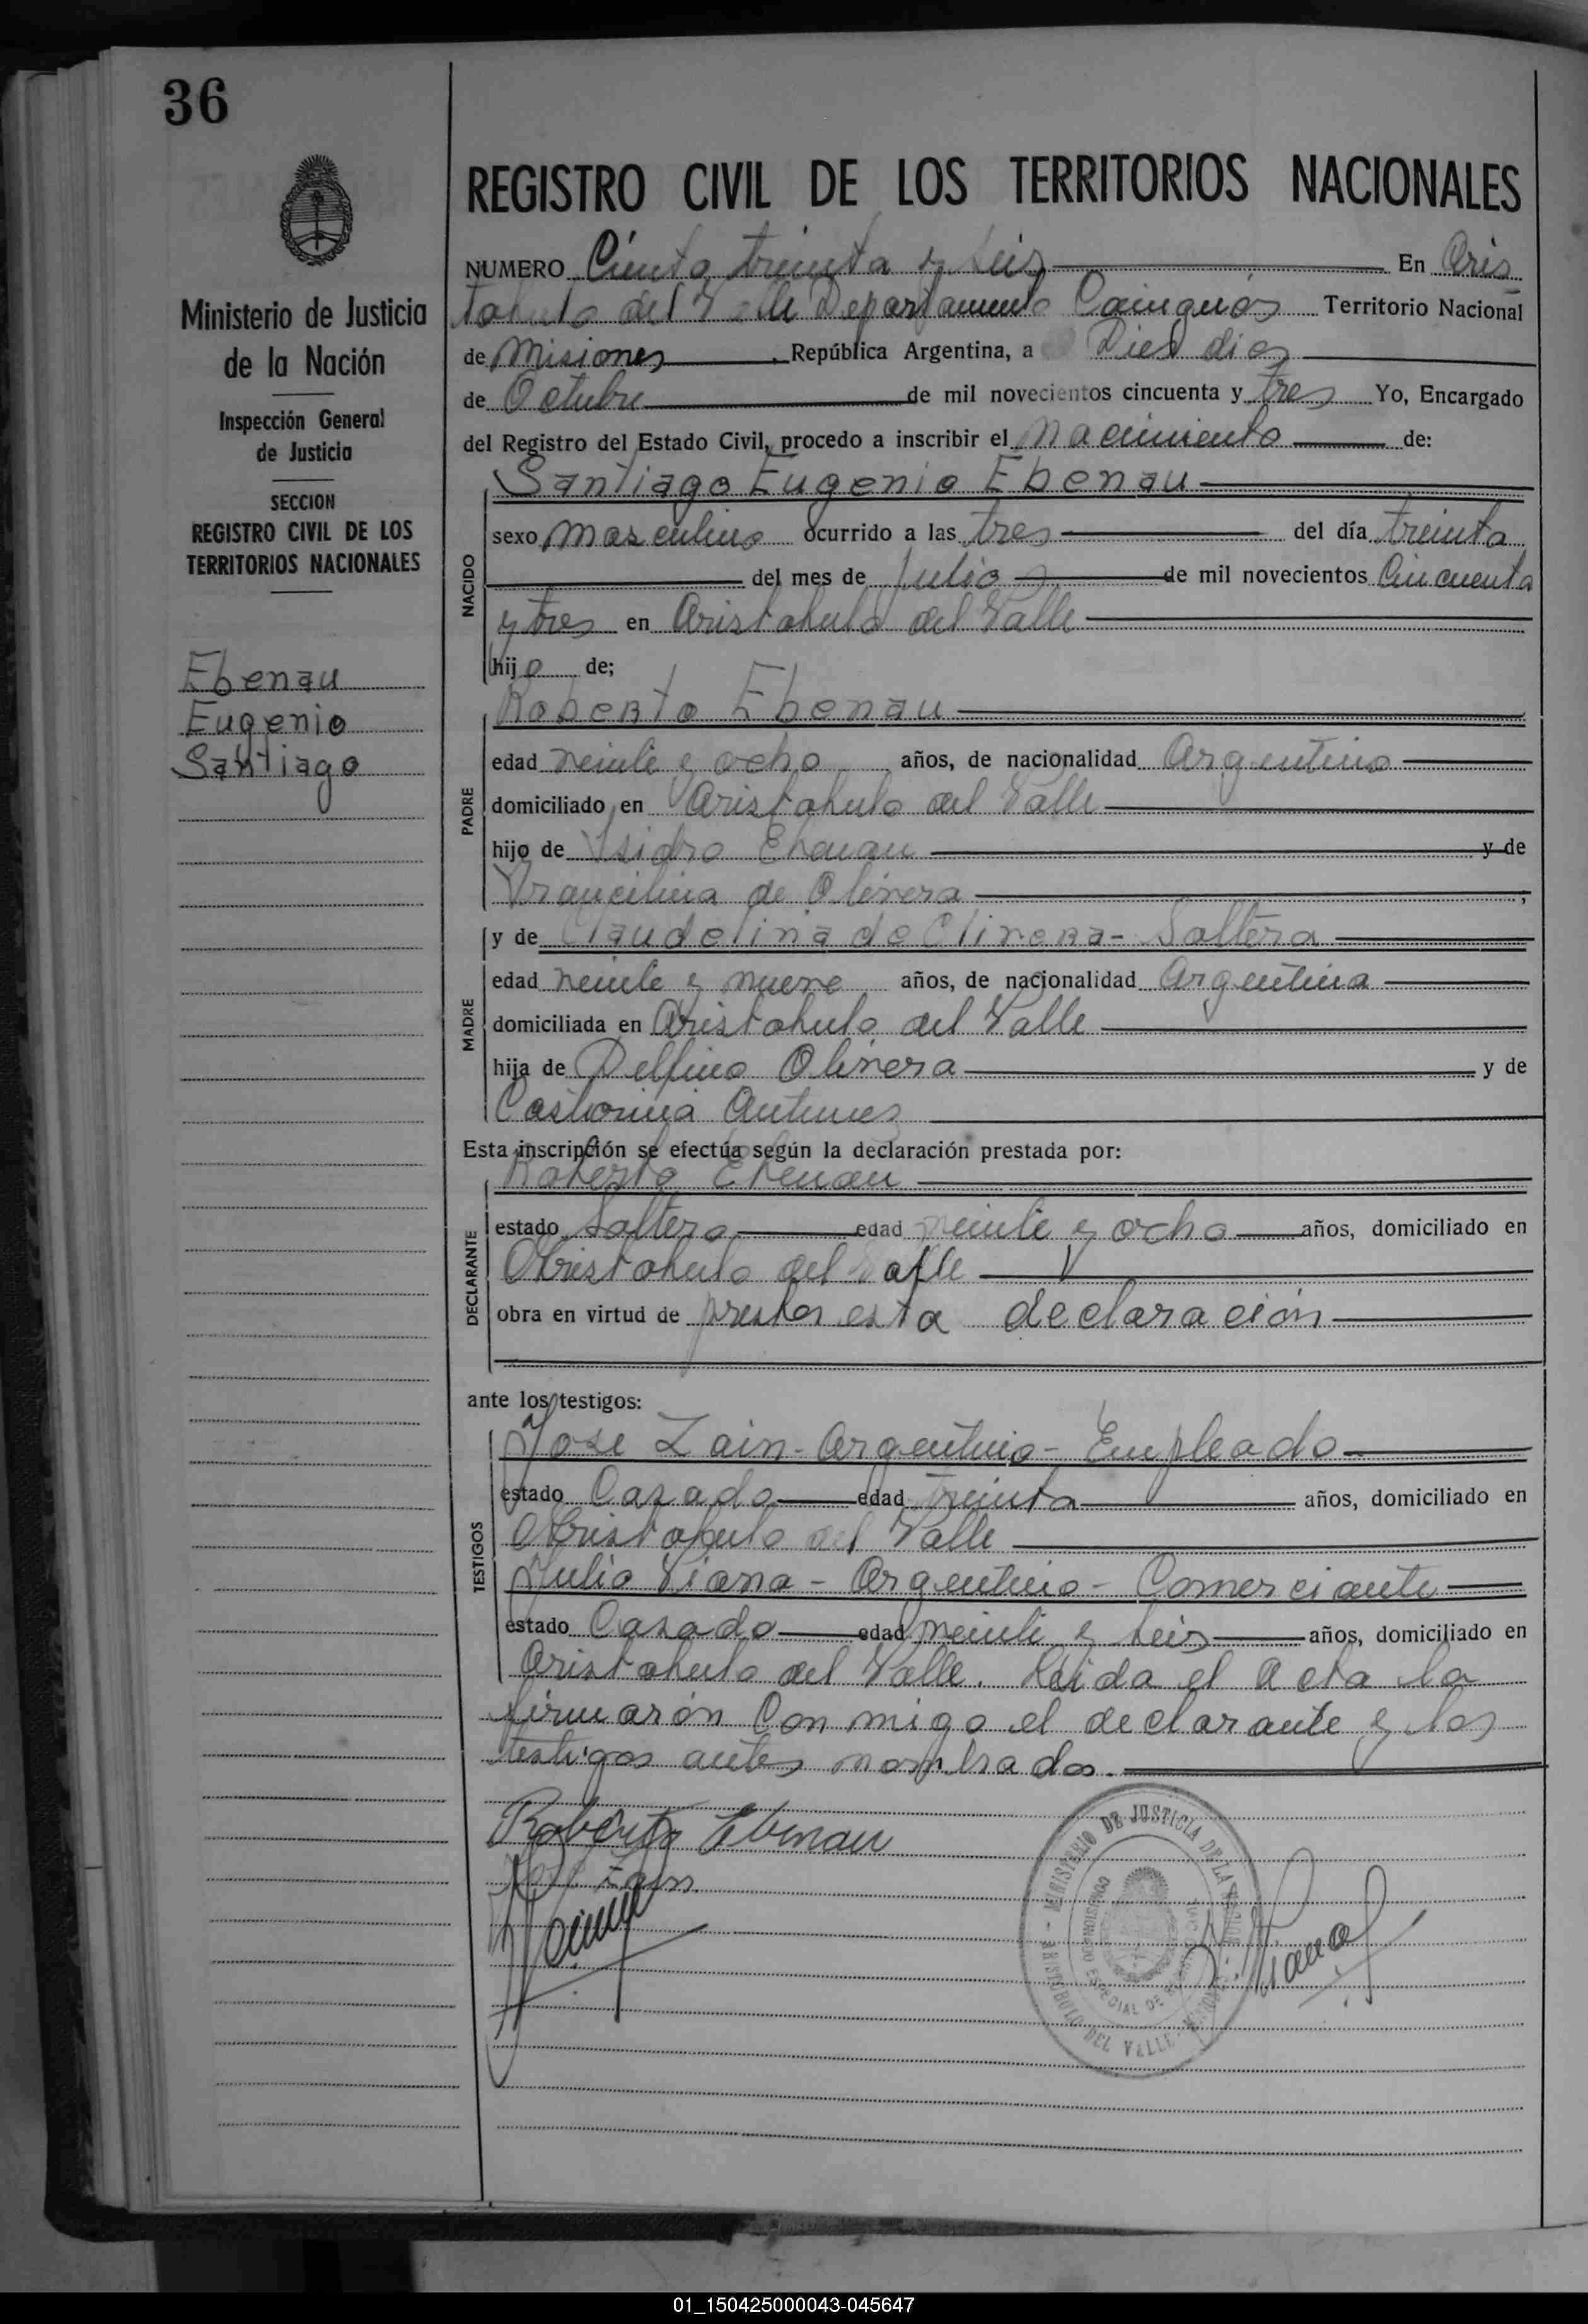 36
REGISTRO CIVIL DE LOS TERRITORIOS NACIONALES
Ministerio de Justicia
de la Nación
Inspección General
de Justicia
SECCION
REGISTRO CIVIL DE LOS
TERRITORIOS NACIONALES
Ebenau
Eugenio
Santiago
NUMERO Ciento treinta y seis En Aris
tobulo del Valle Departamento Cainguás Territorio Nacional
de Misiones República Argentina, a Diez dias
de Octubre de mil novecientos cincuenta y tres Yo, Encargado
del Registro del Estado Civil, procedo a inscribir el Nacimiento de:
NACIDO
Santiago Eugenio Ebenau
sexo masculino ocurrido a las tres del día treinta
del mes de Julio de mil novecientos Cincuenta
y tres en Aristobulo del Valle
hijo de;
PADRE
Roberto Ebenau
edad veinte y ocho años, de nacionalidad Argentino
domiciliado en Aristobulo del Valle
hijo de Isidro Ebenau y de
Francilina de Olivera ;
MADRE
y de Claudelina de Olivera - Soltera
edad veinte y nueve años, de nacionalidad Argentina
domiciliada en Aristobulo del Valle
hija de Delfino Olivera y de
Antunes
Esta inscripción se efectúa según la declaración prestada por:
DECLARANTE
Roberto Ebenau
estado Soltero edad veinte y ocho años, domiciliado en
Aristobulo del Valle
obra en virtud de prestar esta declaración
ante los testigos:
TESTIGOS
Jose Zain - Argentino - Empleado
estado Casado edad Treinta años, domiciliado en
Aristobulo del Valle
Julio Viana - Argentino - Comerciante
estado Casado edad veinte y seis años, domiciliado en
Aristobulo del Valle. Leida el acta la
firmarón Con migo el declarante y los
testigos antes nombrados.
Roberto Ebenau
Jose Zain
J. Viana
MINISTERIO DE JUSTICIA DE LA NACION
ARISTOBULO DEL VALLE - MISIONES
01_150425000043-045647